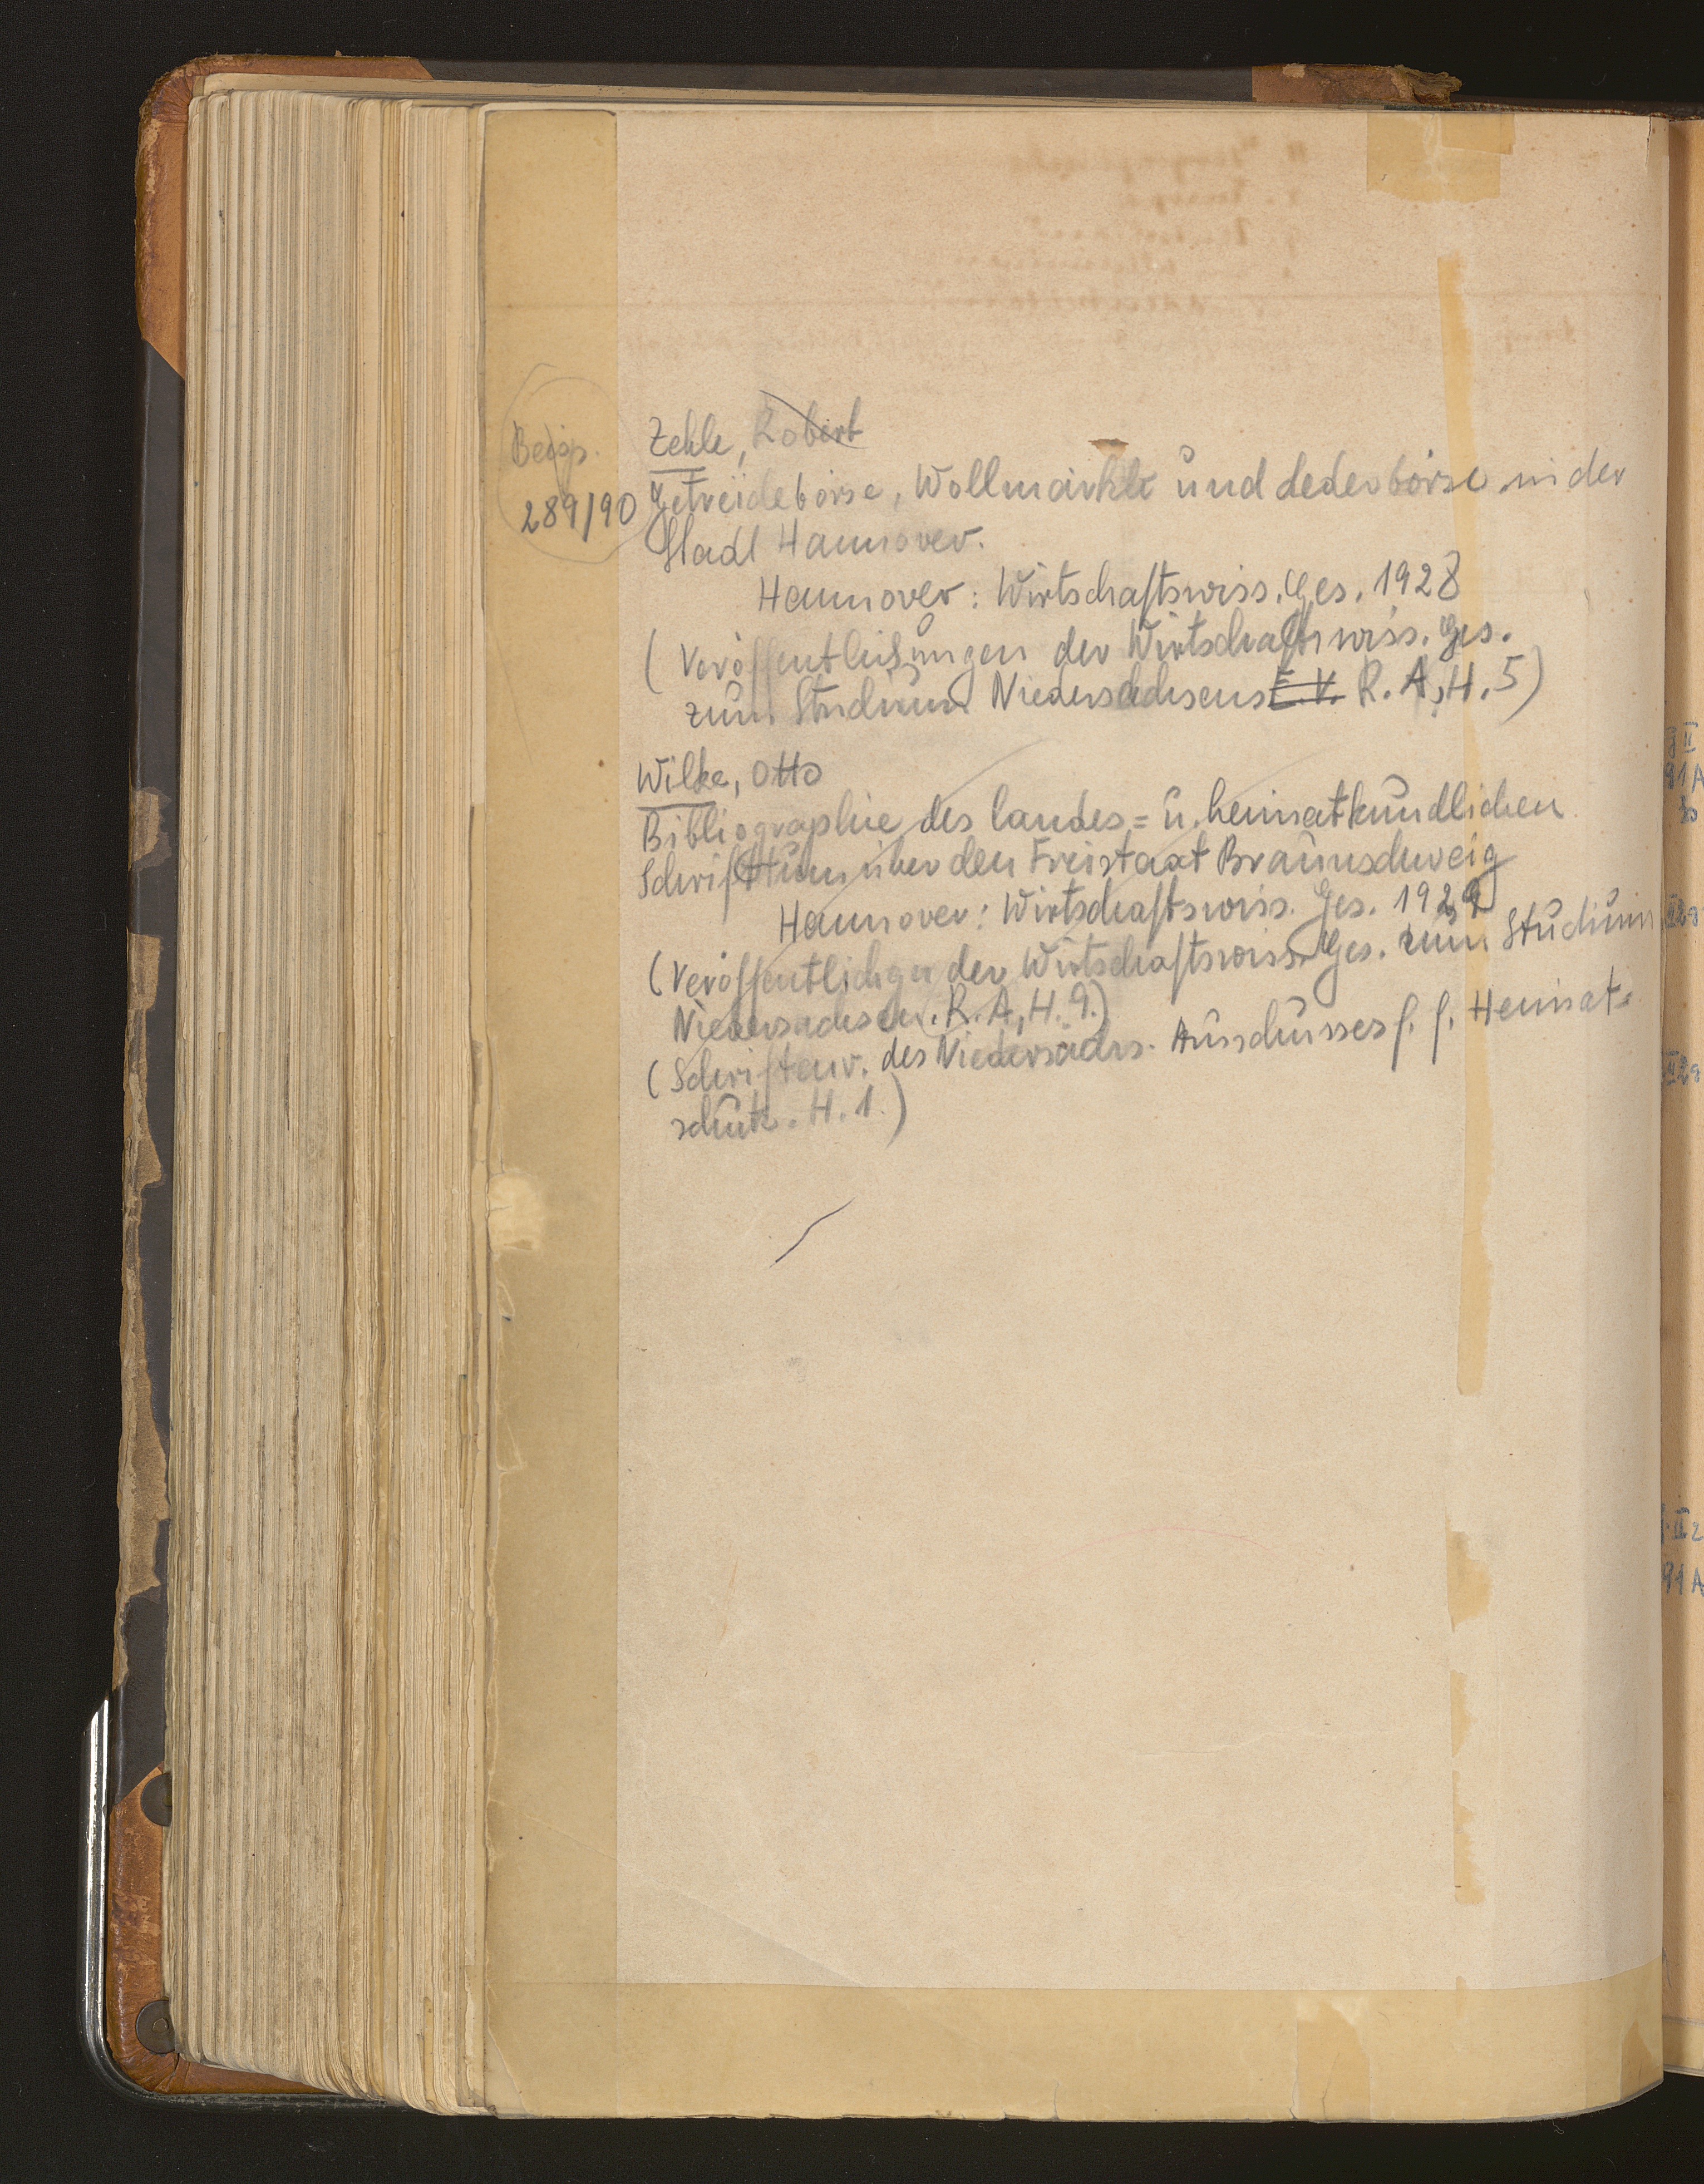 Beisp.
289/90
Zehle, Robert
Getreidebörse, Wollmärkte und Lederbörse in der
Stadt Hannover.
Hannover: Wirtschaftswiss. Ges. 1928
(Veröffentlichungen der Wirtschaftswiss. Ges.
zum Studium Niedersachsens E.V. R. A, H. 5)
Wilke, Otto
Bibliographie des landes= u. heimatkundlichen
Schrifttum über den Freistaat Braunschweig
Hannover: Wirtschaftswiss. Ges. 1929
(Veröffentlichgn der Wirtschaftswiss. Ges. zum Studium
Niedersachsen. R. A, H. 9.)
(Schriftenr. des Niedersächs. Ausschusses f. Heimat=
schutz. H. 1.)
II
91A
II 2a
II 2a
II 2
91A